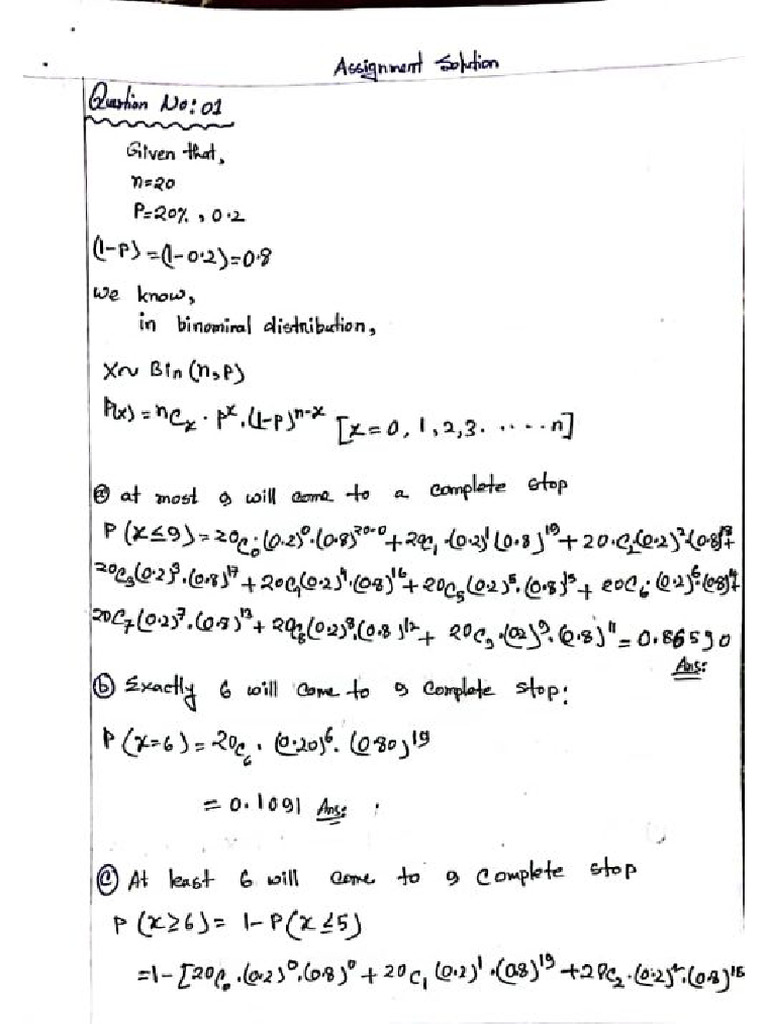 Assignment Solution
Question No: 01
Given that,
n=20
P=20% , 0.2
(1-P) = (1-0.2)=0.8
we know,
in binomiral distribution,
X~ Bin (n,P)
P(x) = nCx . p^x . (1-p)^n-x [x=0, 1, 2, 3. ..... n]
(a) at most 9 will come to a complete stop
P (x≤9) = 20C0.(0.2)^0.(0.8)^20-0 + 20C1 .(0.2)^1 (0.8)^19 + 20.C2(0.2)^2.(0.8)^18+
20C3(0.2)^3.(0.8)^17 + 20C4(0.2)^4.(0.8)^16 + 20C5(0.2)^5.(0.8)^15 + 20C6.(0.2)^6.(0.8)^14+
20C7(0.2)^7.(0.8)^13 + 20C8(0.2)^8.(0.8)^12 + 20C9.(0.2)^9.(0.8)^11 = 0.86590
Ans:
(b) Exactly 6 will come to a complete stop:
P (x=6) = 20C6 . (0.20)^6. (0.80)^19
= 0.1091 Ans:
(c) At least 6 will come to a complete stop
P (x≥6) = 1-P(x≤5)
=1- [20C0 .(0.2)^0.(0.8)^0 + 20C1 (0.2)^1 .(0.8)^19 + 20C2 .(0.2)^2.(0.8)^18